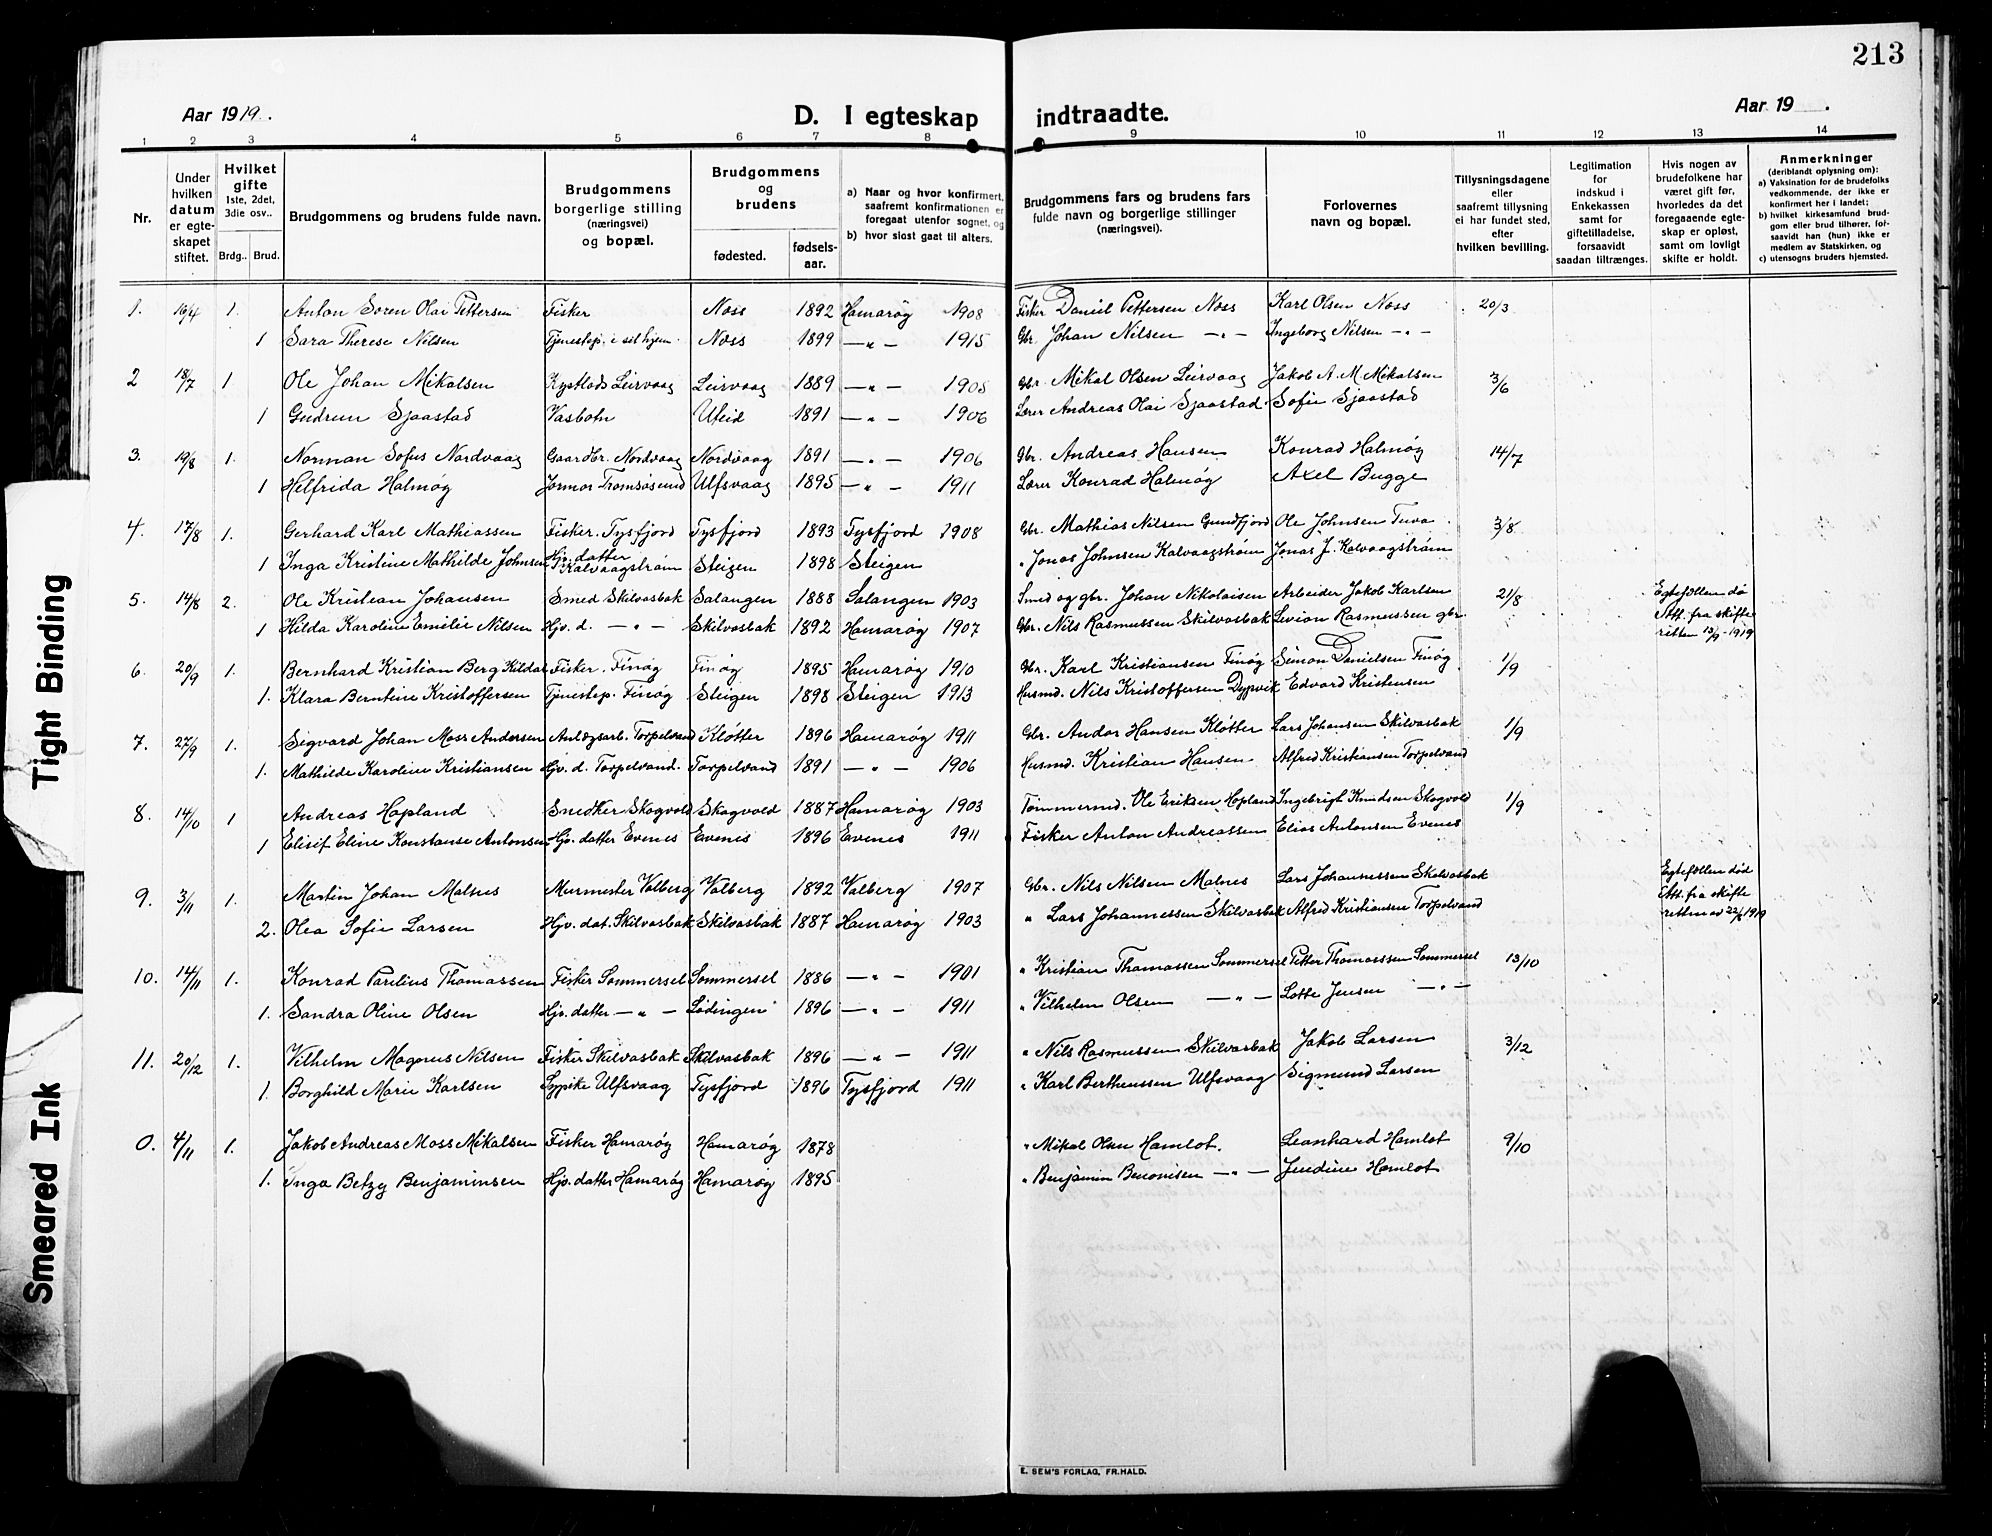 213
Aar 1919.
D. I egteskap indtraadte.
Aar 19 .
1 2 3 4 5 6 7 8 9 10 11 12 13 14
Nr.
Under hvilken datum er egteskapet stiftet.
Hvilket gifte 1ste, 2det, 3die osv..
Brdg.. Brud.
Brudgommens og brudens fulde navn.
Brudgommens borgerlige stilling (næringsvei) og bopæl.
Brudgommens og brudens
fødested. fødselsaar.
a) Naar og hvor konfirmert, saafremt konfirmationen er foregaat utenfor sognet, og
b) hvor sidst gaat til alters.
Brudgommens fars og brudens fars fulde navn og borgerlige stillinger (næringsvei).
Forlovernes navn og bopæl.
Tillysningsdagene eller saafremt tillysning ei har fundet sted, efter hvilken bevilling.
Legitimation for indskud i Enkekassen samt for giftetilladelse, forsaavidt saadan tiltrænges.
Hvis nogen av brudefolkene har været gift før, hvorledes da det foregaaende egteskap er opløst, samt om lovligt skifte er holdt.
Anmerkninger (deriblandt oplysning om):
a) Vaksination for de brudefolks vedkommende, der ikke er konfirmert her i landet;
b) hvilket kirkesamfund brudgom eller brud tilhører, forsaavidt han (hun) ikke er medlem av Statskirken, og
c) utensogns bruders hjemsted.
1. 16/4 1. Anton Soren Olai Pettersen Fisker Noss 1892 Hamarøy 1908 Fisker Daniel Pettersen Noss Karl Olsen Noss 20/3
1 Sara Therese Nilsen Tjenestep. i sit hjem Noss 1899 — " — 1915 Gbr. Johan Nilsen — " — Ingeborg Nilsen — " —
2 18/7 1 Ole Johan Mikalsen Kystlods Leirvaag Leirvaag 1889 — " — 1905 Gbr. Mikal Olsen Leirvaag Jakob A. M. Mikalsen 3/6
1 Gudrun Sjaastad Vasbotn Uteid 1891 — " — 1906 Lærer Andreas Olai Sjaastad Sofie Sjaastad
3. 19/8 1. Norman Sofus Nordvaag Gaardbr. Nordvaag Nordvaag 1891 — " — 1906 Gbr. Andreas Hansen Konrad Halmøy 14/7
1 Helfrida Halmøy Jormor Tromsøsund Ulfsvaag 1895 — " — 1911 Lærer Konrad Halmøy Axel Bugge
4. 17/8 1. Gerhard Karl Mathiassen Fisker. Tysfjord Tysfjord 1893 Tysfjord 1908 Gbr. Mathias Nilsen Grundfjord Ole Johnsen Tuva 3/8
1 Inga Kristine Mathilde Johnsen Hjv. datter Kalvaagstrøm Steigen 1898 Steigen " Jonas Johnsen Kalvaagstrøm Jonas J. Kalvaagstrøm
5. 14/8 2. Ole Kristian Johansen Smed Skilvasbak Salangen 1888 Salangen 1903 Smed og gbr. Johan Nikolaisen Arbeider Jakob Karlsen 21/8 Egtefællen dø
1 Hilda Karoline Emilie Nilsen Hjv. d. — " — Skilvasbak 1892 Hamarøy 1907 Gbr. Nils Rasmussen Skilvasbak Levion Rasmussen gbr Att. fra skifte
retten 13/9-1919
6. 20/9 1. Bernhard Kristian Berg Kildal Fisker. Finøy Finøy 1895 Hamarøy 1910 Gbr. Karl Kristiansen Finøy Simon Danielsen Finøy 1/9
1. Klara Berntine Kristoffersen Tjenestep. Finøy Steigen 1898 Steigen 1913 Husmd. Nils Kristoffersen Dypvik Edvard Kristensen
7. 27/9 1. Sigvard Johan Moss Andersen Anlægsarb. Torpelvand Kløtter 1896 Hamarøy 1911 Gbr. Andor Hansen Kløtter Lars Johansen Skilvasbak 1/9
1. Mathilde Karoline Kristiansen Hjv. d. Torpelvand. Torpelvand 1891 — " — 1906 Husmd. Kristian Hansen Alfred Kristiansen Torpelvand
8. 14/10 1 Andreas Hopland Snedker Skogvold Skogvold 1887 Hamarøy 1903 Tømmermd. Ole Eriksen Hopland Ingebrigt Knudsen Skogvold 1/9
1 Elisif Eline Konstanse Antonsen Hjv. datter Evenes Evenes 1896 Evenes 1911 Fisker Anton Andreassen Elias Antonsen Evenes
9. 3/11 1. Martin Johan Malnes Murmester Valberg Valberg 1892 Valberg 1907 Gbr. Nils Nilsen Malnes Lars Johannessen Skilvasbak Egtefællen død
2. Olea Sofie Larsen Hjv. dat. Skilvasbak Skilvasbak 1887 Hamarøy 1903 " Lars Johannessen Skilvasbak Alfred Kristiansen Torpelvand Att. fra skifte
retten av 22/ 1919
10. 14/11 1. Konrad Parelius Thomassen Fisker Sommersel Sommersel 1886 — " — 1901 " Kristian Thomassen Sommersel Petter Thomasssen Sommersel 13/10
1. Sandra Oline Olsen Hjv. datter — " — Lødingen 1896 — " — 1911 " Vilhelm Olsen — " — Lotte Jensen — " —
11. 20/12 1. Vilhelm Magnus Nilsen Fisker Skilvasbak Skilvasbak 1896 — " — 1911 " Nils Rasmussen Skilvasbak Jakob Larsen 3/12
1. Borghild Marie Karlsen Sypike Ulfsvaag Tysfjord 1896 Tysfjord 1911 " Karl Bertheussen Ulfsvaag Sigmund Larsen
0. 4/11 1. Jakob Andreas Moss Mikalsen Fisker Hamarøy Hamarøy 1878 " Mikal Olsen Hamlot. Leonhard Hamlot 9/10
1. Inga Betzy Benjaminsen Hjv. datter Hamarøy Hamarøy 1895 " Benjamin Benonisen — " — Jendine Hamlot
E. SEM'S FORLAG, FR.HALD.
Tight Binding
Smeared Ink